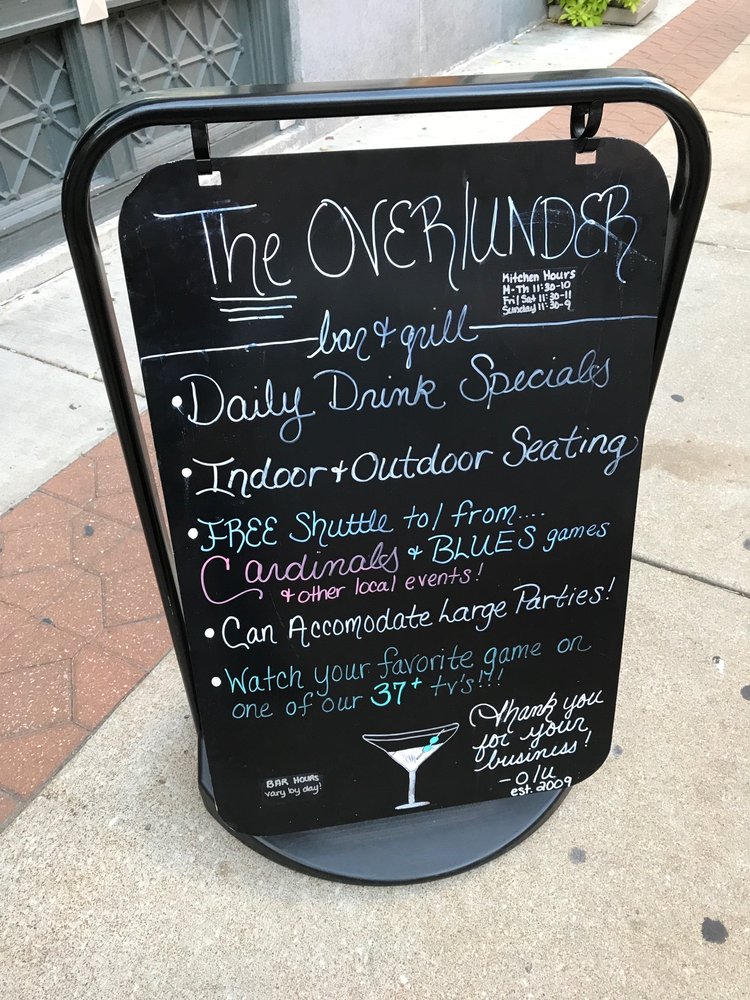 The OVER/UNDER
Kitchen Hours
M-Th 11:30-10
Fri/Sat 11:30-11
Sunday 11:30-9
bar & grill
• Daily Drink Specials
• Indoor & Outdoor Seating
• FREE Shuttle to/from....
Cardinals & BLUES games
& other local events!
• Can Accomodate Large Parties!
• Watch your favorite game on
one of our 37+ tv's!!!
Thank you
for your
business!
- O/U
est. 2009
BAR HOURS
vary by day!